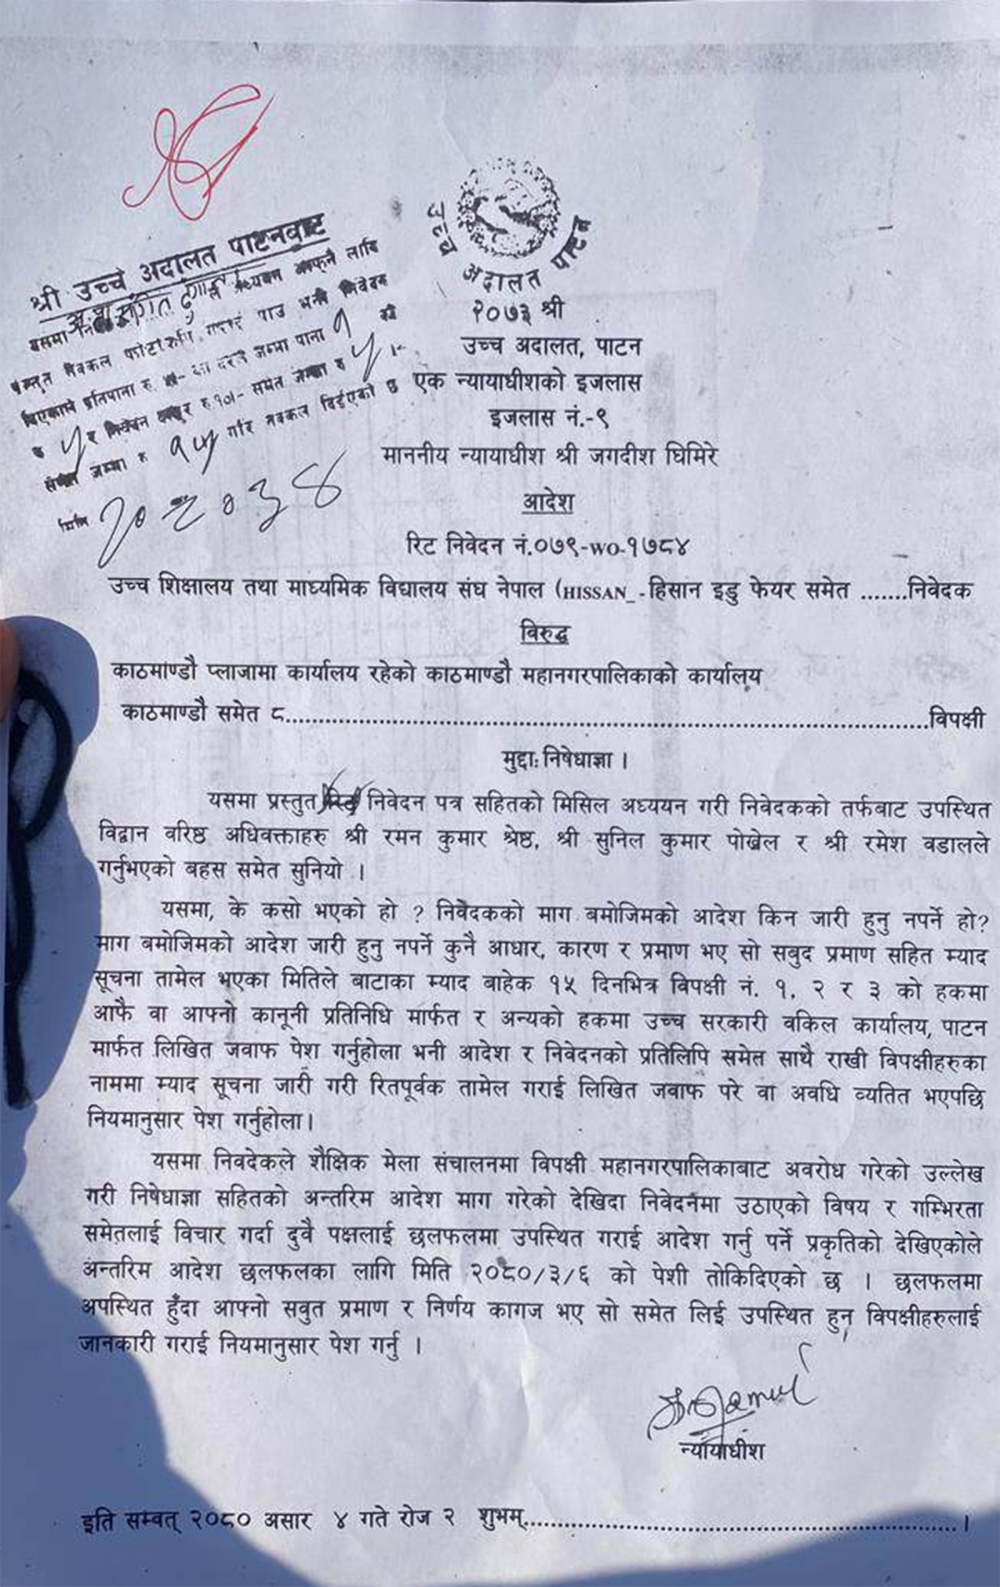 श्री उच्च अदालत पाटनबाट
यसमा
प्रस्तुत नक्कल फोटोकपी गराई पाउँ भनी निवेदन
दिएकाले प्रतिपाना रु ५।- का दरले जम्मा पाना १ को
रु ५ र निवेदन दस्तुर रु १०।- समेत जम्मा रु
समेत जम्मा रु १५ गरि नक्कल दिईएको छ
मिति २०८०।३।४
उच्च अदालत पाटन
२०७३ श्री
उच्च अदालत, पाटन
एक न्यायाधीशको इजलास
इजलास नं.-९
माननीय न्यायाधीश श्री जगदीश घिमिरे
आदेश
रिट निवेदन नं.०७९-WO-१७८४
उच्च शिक्षालय तथा माध्यमिक विद्यालय संघ नेपाल (HISSAN_-हिसान इडु फेयर समेत .......निवेदक
विरुद्ध
काठमाण्डौ प्लाजामा कार्यालय रहेको काठमाण्डौ महानगरपालिकाको कार्यालय
काठमाण्डौ समेत ८..........................................................................................विपक्षी
मुद्दा: निषेधाज्ञा ।
यसमा प्रस्तुत निवेदन पत्र सहितको मिसिल अध्ययन गरी निवेदकको तर्फबाट उपस्थित
विद्वान वरिष्ठ अधिवक्ताहरु श्री रमन कुमार श्रेष्ठ, श्री सुनिल कुमार पोख्रेल र श्री रमेश बडालले
गर्नुभएको बहस समेत सुनियो ।
यसमा, के कसो भएको हो ? निवेदकको माग बमोजिमको आदेश किन जारी हुनु नपर्ने हो?
माग बमोजिमको आदेश जारी हुनु नपर्ने कुनै आधार, कारण र प्रमाण भए सो सबुद प्रमाण सहित म्याद
सूचना तामेल भएका मितिले बाटाका म्याद बाहेक १५ दिनभित्र विपक्षी नं. १, २ र ३ को हकमा
आफै वा आफ्नो कानूनी प्रतिनिधि मार्फत र अन्यको हकमा उच्च सरकारी वकिल कार्यालय, पाटन
मार्फत लिखित जवाफ पेश गर्नुहोला भनी आदेश र निवेदनको प्रतिलिपि समेत साथै राखी विपक्षीहरुका
नाममा म्याद सूचना जारी गरी रितपूर्वक तामेल गराई लिखित जवाफ परे वा अवधि व्यतित भएपछि
नियमानुसार पेश गर्नुहोला।
यसमा निवदेकले शैक्षिक मेला संचालनमा विपक्षी महानगरपालिकाबाट अवरोध गरेको उल्लेख
गरी निषेधाज्ञा सहितको अन्तरिम आदेश माग गरेको देखिदा निवेदनमा उठाएको विषय र गम्भिरता
समेतलाई विचार गर्दा दुवै पक्षलाई छलफलमा उपस्थित गराई आदेश गर्नु पर्ने प्रकृतिको देखिएकोले
अन्तरिम आदेश छलफलका लागि मिति २०८०/३/६ को पेशी तोकिदिएको छ । छलफलमा
उपस्थित हुँदा आफ्नो सबुत प्रमाण र निर्णय कागज भए सो समेत लिई उपस्थित हुन विपक्षीहरुलाई
जानकारी गराई नियमानुसार पेश गर्नु ।
न्यायाधीश
इति सम्वत् २०८० असार ४ गते रोज २ शुभम्..........................................................।